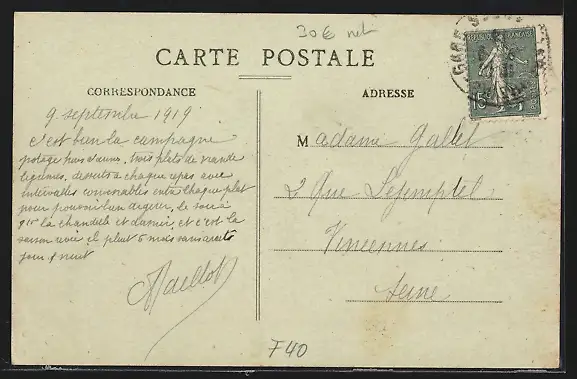 30€ net
CARTE POSTALE
CORRESPONDANCE
ADRESSE
REPUBLIQUE FRANÇAISE
15
GARE
9 septembre 1919
c'est bien la campagne
potage hors d'œuvre, trois plats de viande
légumes, desserts à chaque repas avec
intervalles convenables entre chaque plat
pour pouvoir bien digérer, le soir à
9h la chandelle et dormir, et c'est la
saison ici il pleut 6 mois sans arrêt
jour & nuit
Maillot
Madame Gallet
2 Rue Lejemptel
Vincennes
Seine
F40